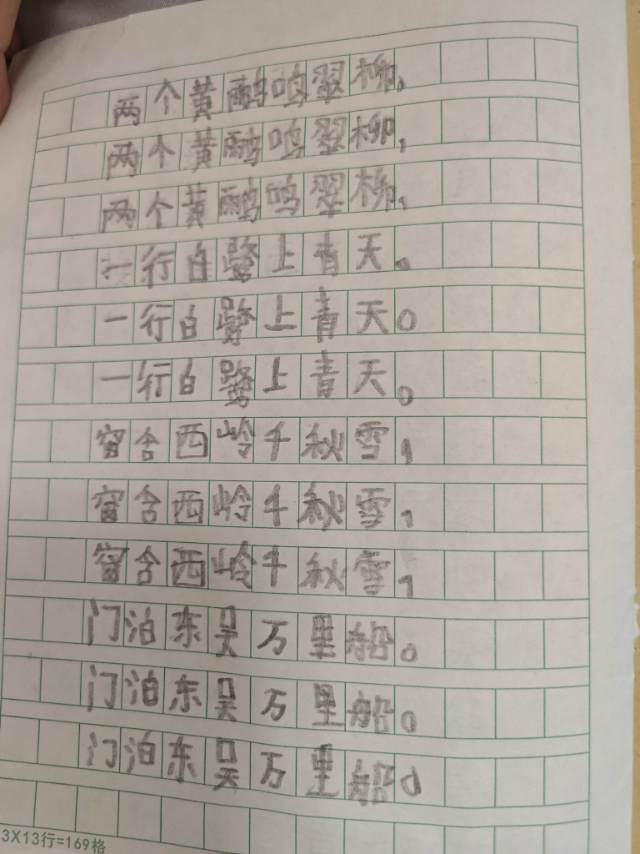 两个黄鹂鸣翠柳。
两个黄鹂鸣翠柳,
两个黄鹂鸣翠柳,
一行白鹭上青天。
一行白鹭上青天。
一行白鹭上青天。
窗含西岭千秋雪,
窗含西岭千秋雪,
窗含西岭千秋雪,
门泊东吴万里船。
门泊东吴万里船。
门泊东吴万里船。
3X13行=169格